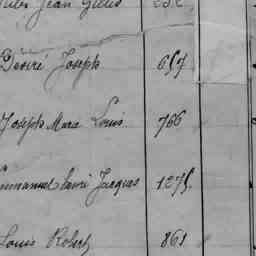 Jean Gilles
Désiré Joseph 657
Joseph Marc Louis 766
Emmanuel Henri Jacques 1275
Louis Robert 861